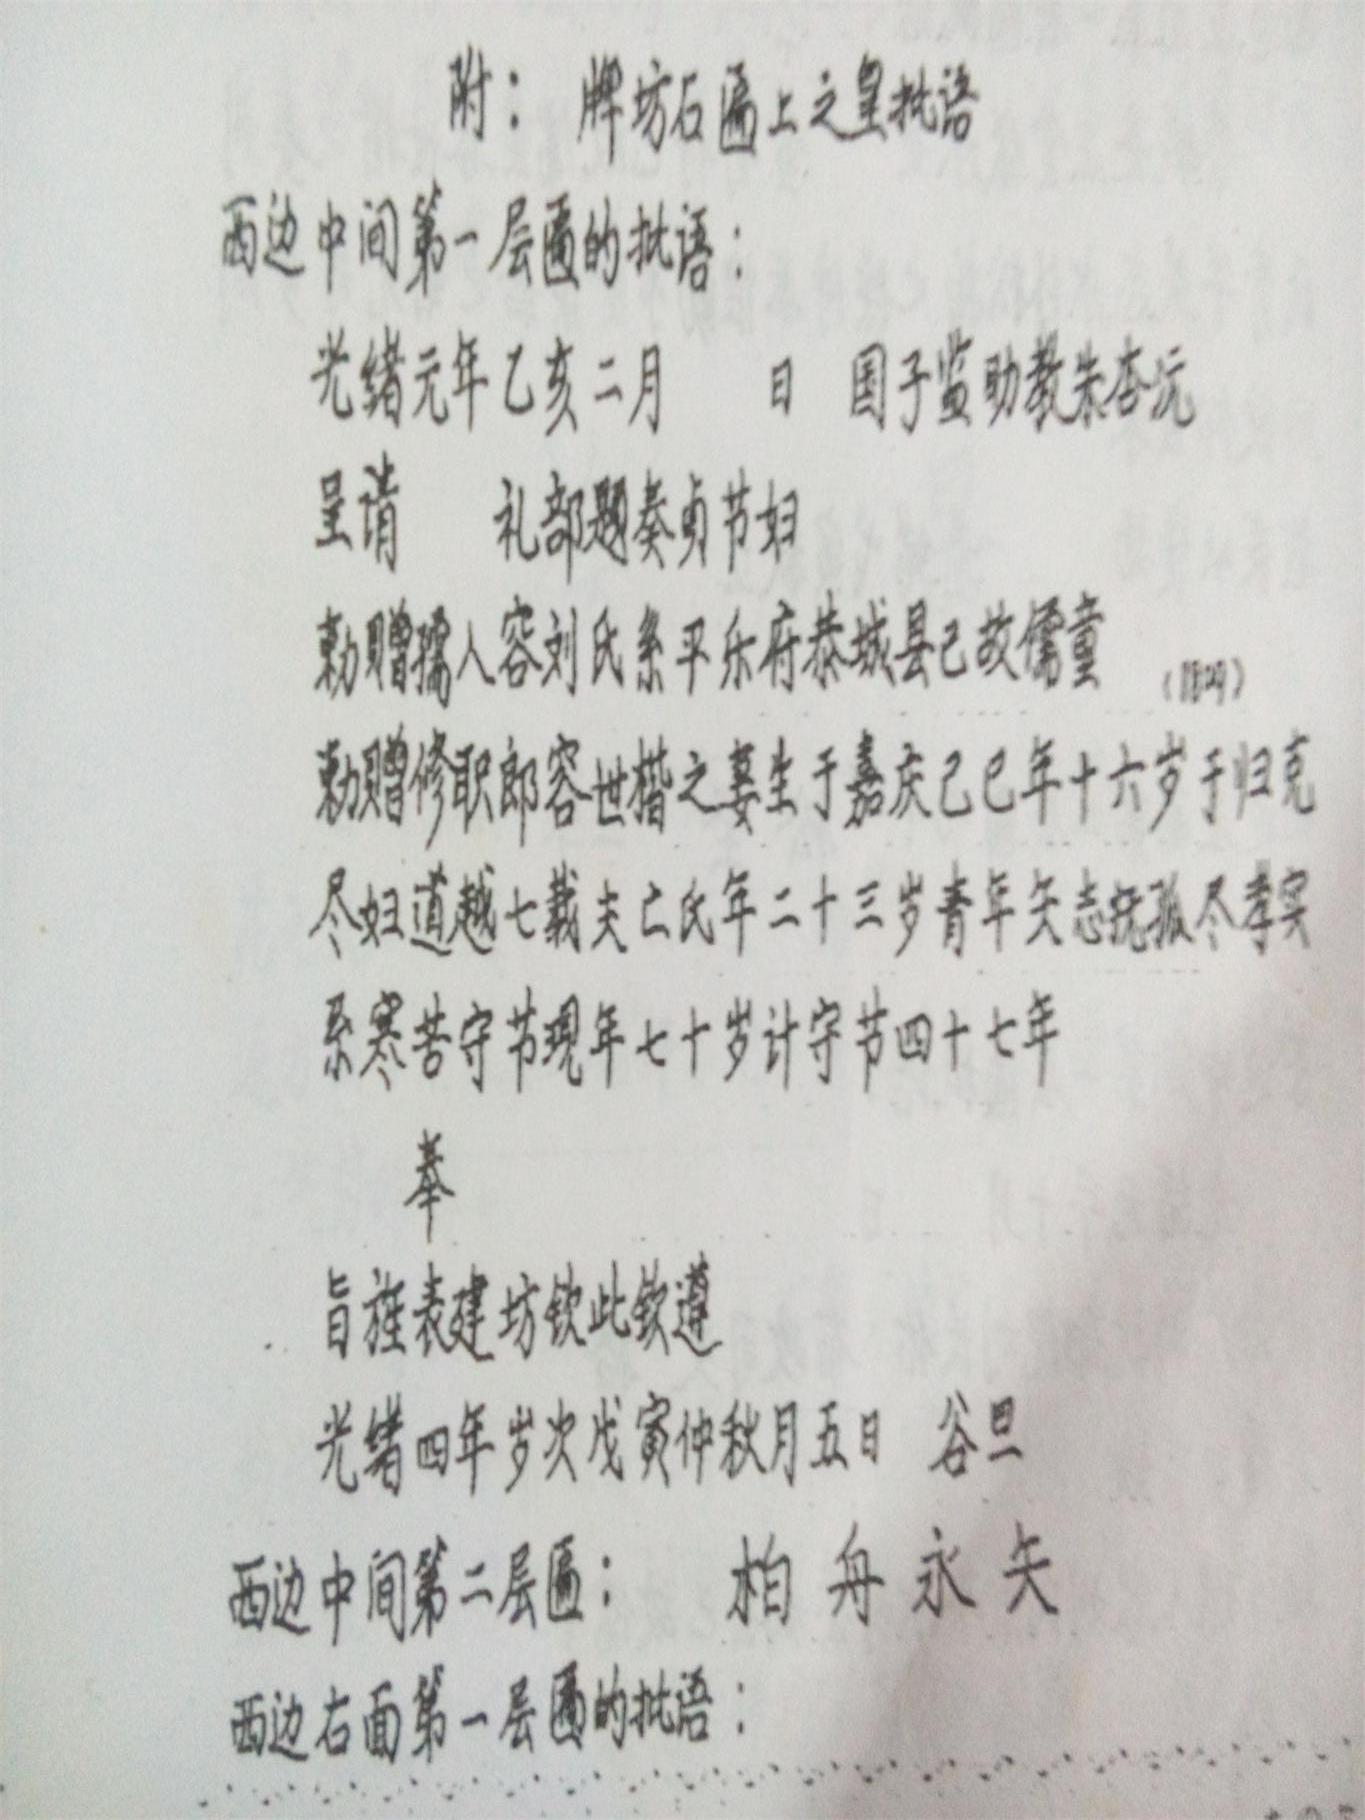 附：牌坊石匾上之皇批语
西边中间第一层匾的批语：
光绪元年乙亥二月　　日　国子监助教朱杏沅
呈请　　礼部题奏贞节妇
勅赠孺人容刘氏系平乐府恭城县已故儒童
勅赠修职郎容世楷之妻生于嘉庆己巳年十六岁于归克
尽妇道越七载夫亡氏年二十三岁青年矢志抚孤尽孝实
系寒苦守节现年七十岁计守节四十七年
奉
旨旌表建坊钦此钦遵
光绪四年岁次戊寅仲秋月五日　谷旦
西边中间第二层匾：　柏舟永矢
西边右面第一层匾的批语：